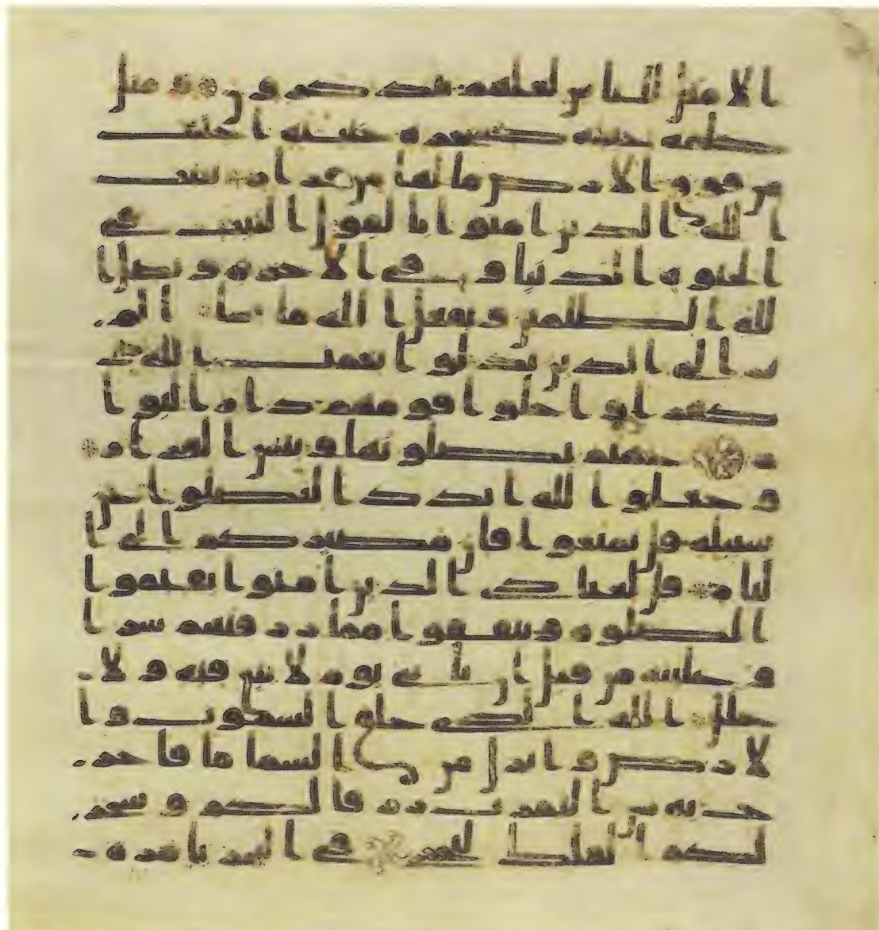 الامثل للناس لعلهم يتذكرون ومثل
كلمه خبيثه كشجره خبيثه اجتثت
من فوق الارض ما لها من قرار يثبت
الله الذين امنوا بالقول الثبت في
الحيوه الدنيا وفي الاخره ويضل ا
لله الظلمين ويفعل الله ما يشا الم
تر الى الذين بدلوا نعمت الله
كفرا واحلوا قومهم دار البوا
ر جهنم يصلونها وبئس القرار
وجعلوا لله اندادا ليضلوا عن
سبيله قل تمتعوا فان مصيركم الى ا
لنار قل لعبادي الذين امنوا يقيموا
الصلوه وينفقوا مما رزقنهم سرا
وعلنيه من قبل ان ياتي يوم لا بيع فيه ولا
خلل الله الذي خلق السموت وا
لارض وانزل من السما ما فاخر
ج به من الثمرت رزقا لكم وسخر
لكم الفلك لتجري في البحر بامره